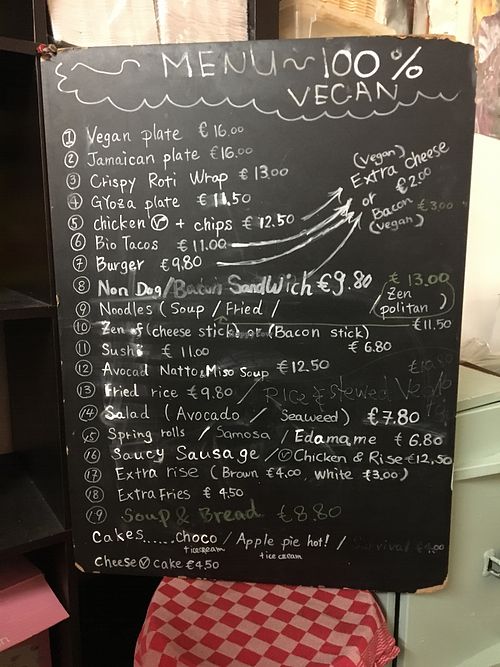 MENU~100%
VEGAN
1 Vegan plate €16.00
2 Jamaican plate €16.00
3 Crispy Roti Wrap €13.00
4 GYoza plate €11.50
5 chicken V + chips €12.50
6 Bio Tacos €11.00
7 Burger €9.80
(vegan)
Extra cheese
or €2.00
Bacon €3.00
(vegan)
8 Non Dog/Bacon Sandwich €9.80
9 Noodles (Soup / Fried / Zen politan) €13.00
€11.50
10 Zen (cheese stick) or (Bacon stick)
€6.80
11 Sushi €11.00
12 Avocad Natto & Miso Soup €12.50
13 Fried rice €9.80 / Rice & stewed
14 Salad (Avocado / Seaweed) €7.80
15 Spring rolls / Samosa / Edamame €6.80
16 Saucy Sausage / V Chicken & Rise €12,50
17 Extra rise (Brown €4.00, white €3.00)
18 Extra Fries €4.50
19 Soup & Bread €8.80
Cakes......choco / Apple pie hot! / Survival €4.00
+icecream +ice cream
Cheese V cake €4.50